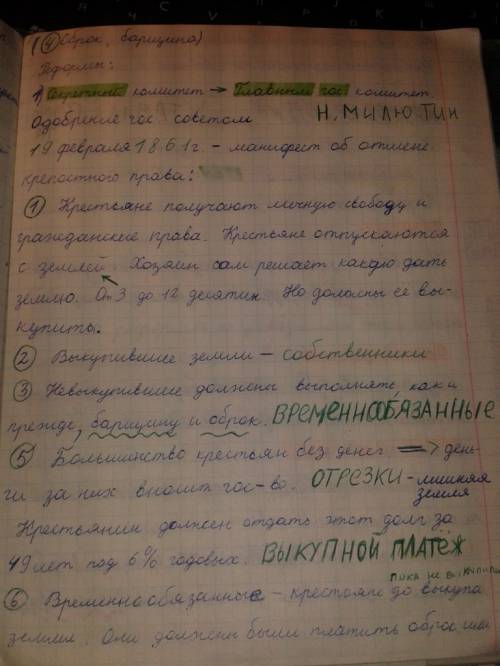 (④ Оброк, барщина)
Реформы:
1) Секретный комитет → Главный гос. комитет.
Одобрение гос. советом Н. МИЛЮТИН
19 февраля 1861г. - манифест об отмене
крепостного права:
① Крестьяне получают личную свободу и
гражданские права. Крестьяне отпускаются
с землей. Хозяин сам решает какую дать
землю. От 3 до 12 десятин. Но должны её вы-
купить.
② Выкупившие земли - собственники
③ Невыкупившие должны выполнять как и
прежде, барщину и оброк. ВРЕМЕННООБЯЗАННЫЕ
⑤ Большинство крестьян без денег. => день-
ги за них вносит гос-во. ОТРЕЗКИ - лишняя
земля
Крестьянин должен отдать этот долг за
49 лет под 6% годовых. ВЫКУПНОЙ ПЛАТЁЖ
пока не выкупили
⑥ Временнообязанные - крестьяне до выкупа
земли. Они должны были платить оброк или